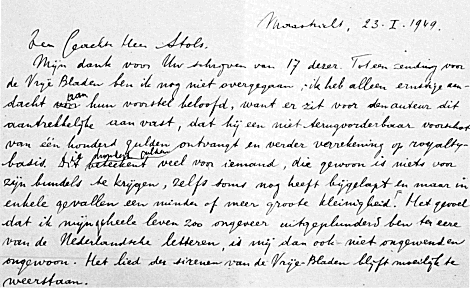 Maastricht, 23-I-1949.
Zeer Geachte Heer Stols.
Mijn dank voor Uw schrijven van 17 dezer. Tot een zending voor
de Vrije Bladen ben ik nog niet overgegaan; ik heb alleen ernstige aan-
dacht voor aan hun voorstel beloofd, want er zit voor den auteur dit
aantrekkelijke aan vast, dat hij een niet terugvorderbaar voorschot
van één honderd gulden ontvangt en verder verrekening op royalty-
basis. Dit honderd gulden beteekent veel voor iemand, die gewoon is niets voor
zijn bundels te krijgen, zelfs soms nog heeft bijgelapt en maar in
enkele gevallen een minder of meer groote kleinigheid. Het gevoel
dat ik mijn heele leven zoo ongeveer uitgeplunderd ben ter eere
van de Nederlandsche letteren, is mij dan ook niet ongewend en
ongewoon. Het lied der sirenen van de Vrije-Bladen blijft moeilijk te
weerstaan.